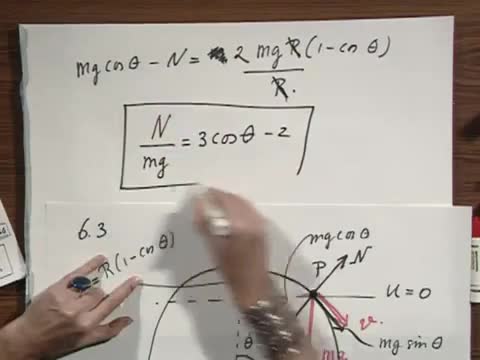 mg cos θ − N = 2 mgR (1−cos θ)
R.
N
mg
= 3 cos θ − 2
6.3
= R(1−cos θ)
mg cos θ
P
N
U = 0
v.
mg
mg sin θ
θ